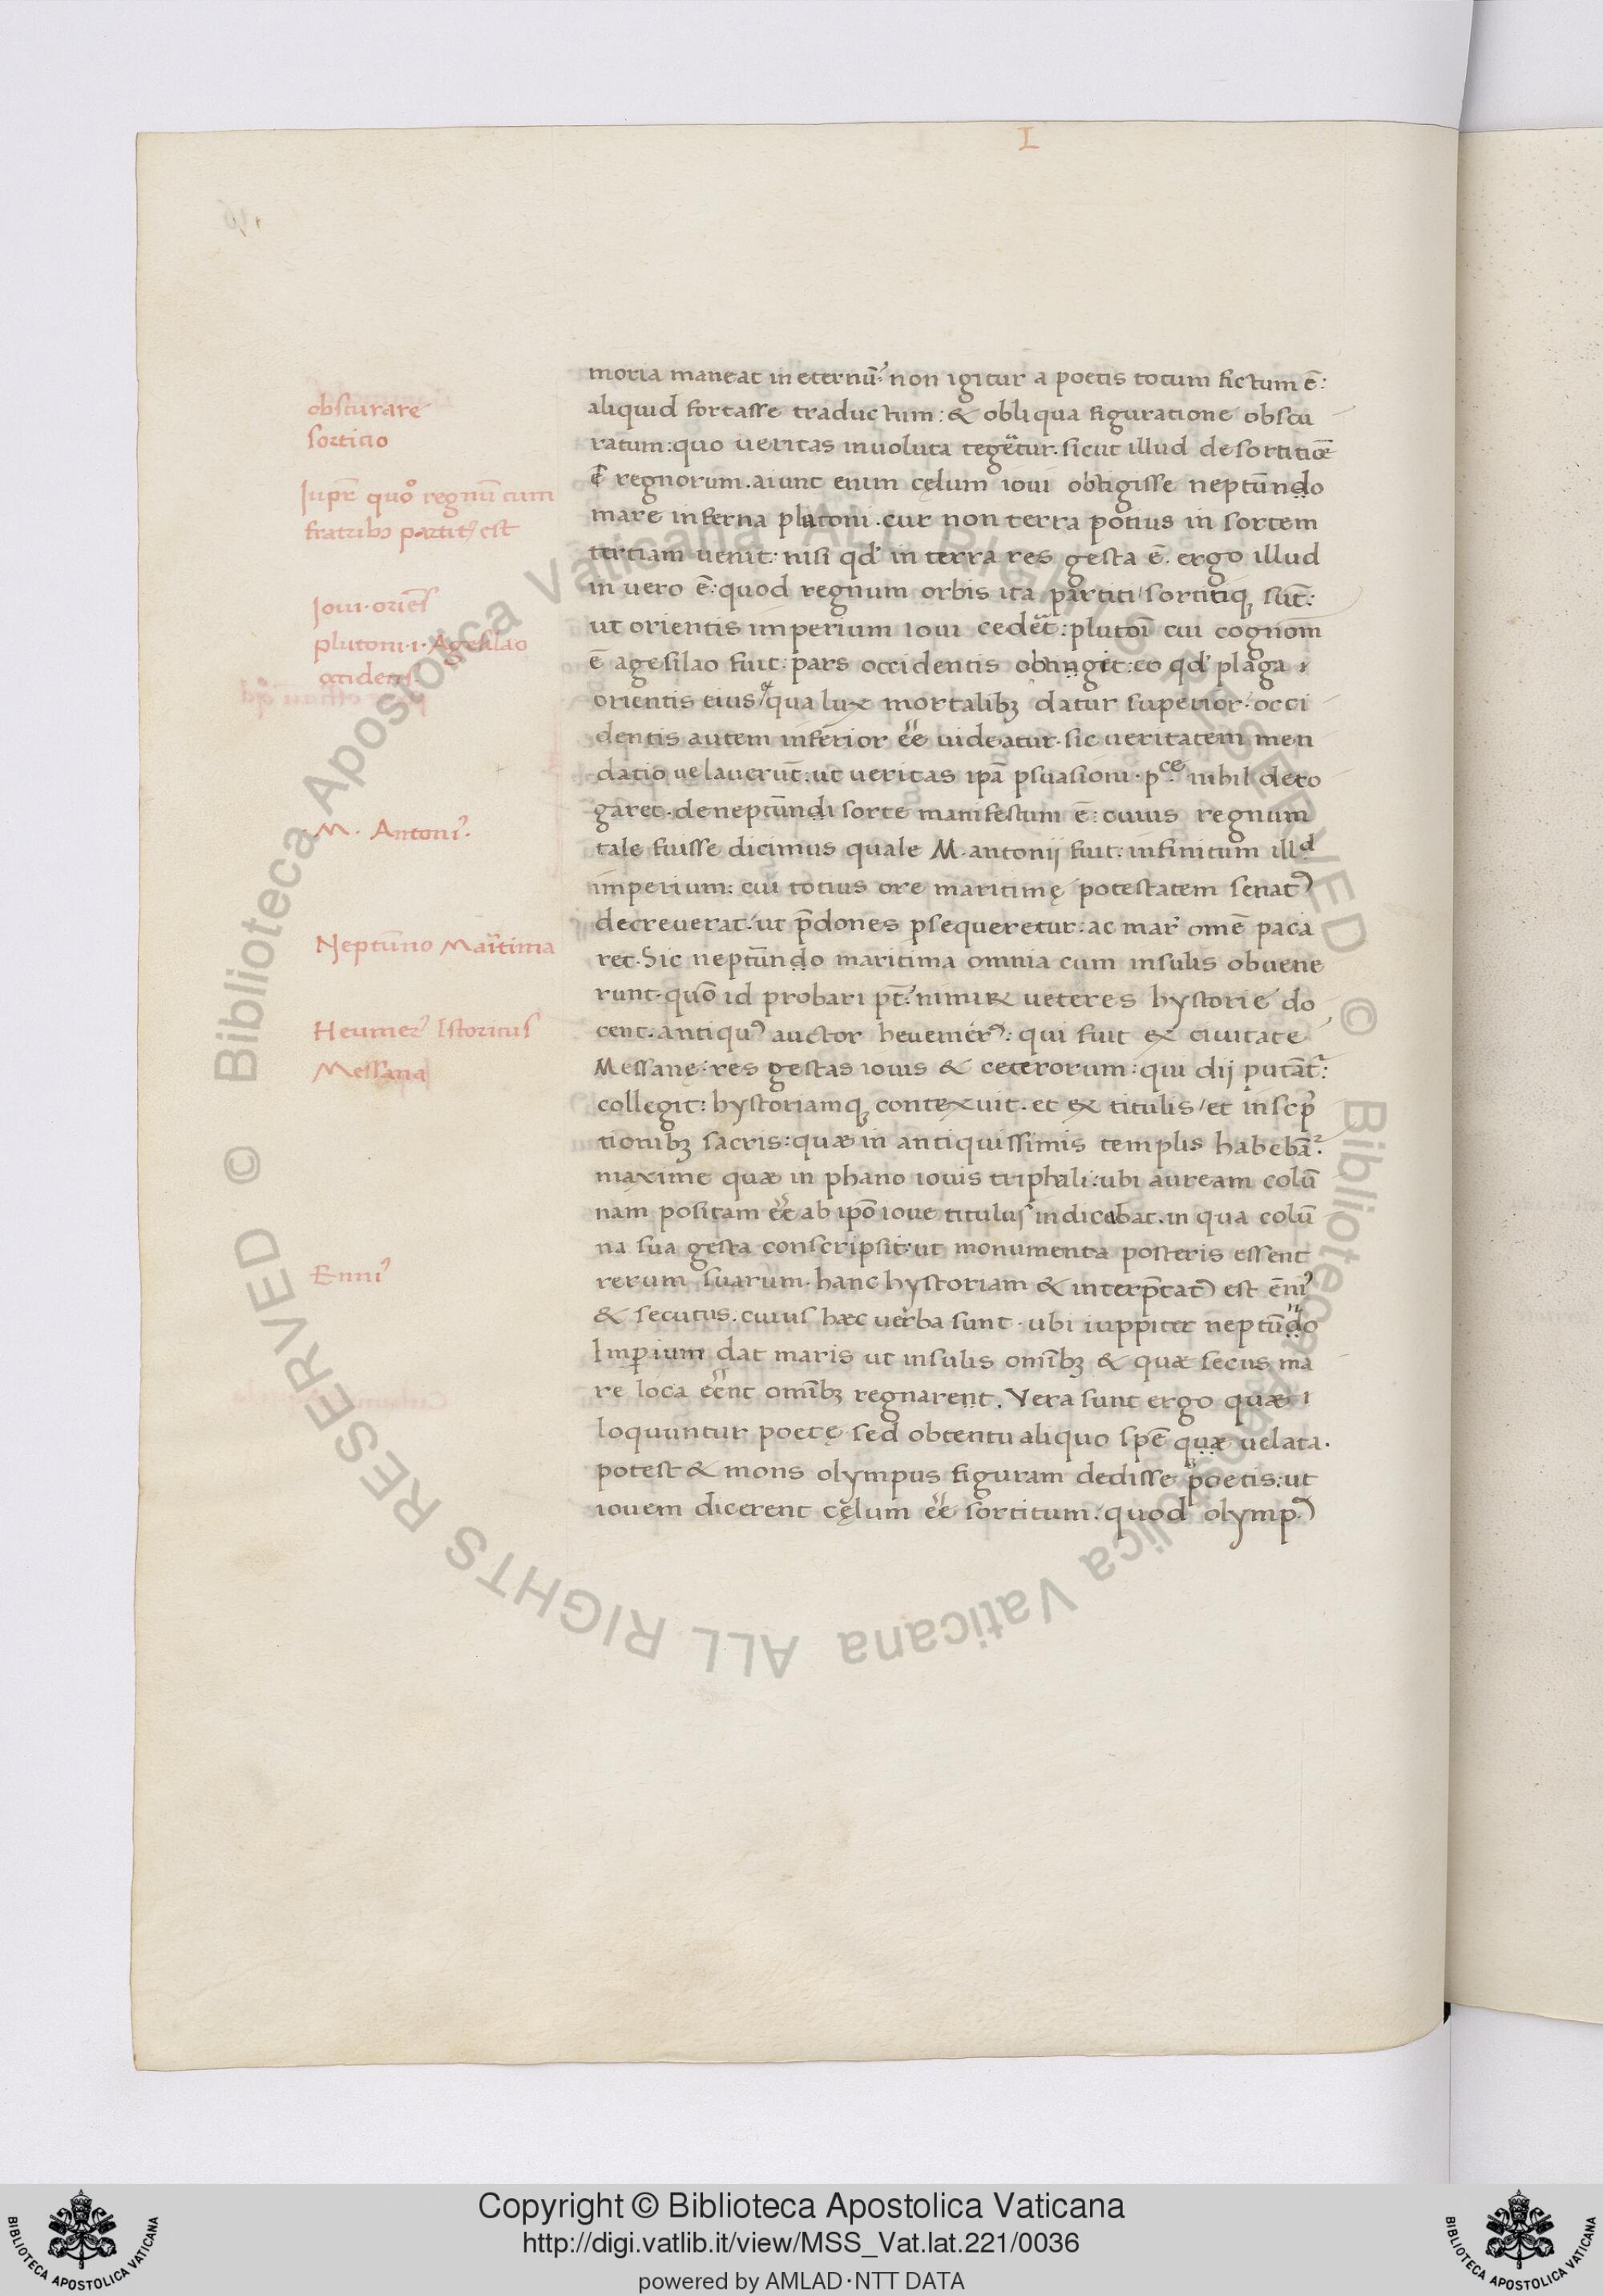 I
moria maneat in eternū? non igitur a poetis totum fictum ē:
aliquid fortasse traductum: & obliqua figuratione obscu
ratum: quo ueritas inuoluta tegeretur. sicut illud de sortitiōe
regnorum. aiunt enim cęlum ioui obtigisse neptūndo
mare inferna plutoni. cur non terra potius in sortem
tertiam uenit: nisi qd' in terra res gesta ē. ergo illud
in uero ē: quod regnum orbis ita partiti / sortitiq; sūt:
ut orientis imperium ioui cederet: plutoī cui cognom
ē agesilao fuit: pars occidentis obtingeret: eo qd' plaga
orientis e qua lux mortalibꝫ datur superior: occi
dentis autem inferior eē uideatur. sic ueritatem men
datio uelauerūt: ut ueritas ipā psuasioni. pce nihil dero
garet. de neptūndi sorte manifestum ē: cuius regnum
tale fuisse dicimus quale M. antonij fuit: infinitum illd
imperium: cui totius ore maritimę potestatem senat9
decreuerat: ut p̄dones psequeretur: ac mar̄ omē paca
ret. Sic neptūndo maritima omnia cum insulis obuene
runt. quō id probari pt̄? nimiꝝ ueteres hystorie do
cent. antiqu9 auctor heuemer9: qui fuit ex ciuitate
Messanę: res gestas iouis & ceterorum: qui dij putāt~:
collegit: hystoriamq; contexuit. et ex titulis / et inscp̄
tionibꝫ sacris: quæ in antiquissimis templis habebā~.
maxime quæ in phano iouis triphili: ubi auream colū
nam positam eē ab ipō ioue titulus indicabat. in qua colū
na sua gesta conscripsit: ut monumenta posteris essent
rerum suarum. hanc hystoriam & interp̄tat9 est ēni9
& secutus. cuius hæc uerba sunt. ubi iuppiter neptūndo
Imperium dat maris ut insulis omībꝫ & quæ secus ma
re loca eēnt omībꝫ regnarent. Vera sunt ergo quæ
loquuntur poetę sed obtentu aliquo spēquæ uelata.
potest & mons olympus figuram dedisse poetis: ut
iouem dicerent cęlum eē sortitum: quod olymp9
obscurare
sortitio
Iupr̄ quō regnū cum
fratribꝫ partit9 est
Ioui. oriēs
plutoni .i. Agesilao
occidens
M. Antoni9.
Neptūno Maritima
Heumer9 Istoricus
Messana
Enni9
Copyright © Biblioteca Apostolica Vaticana
http://digi.vatlib.it/view/MSS_Vat.lat.221/0036
powered by AMLAD·NTT DATA
© Biblioteca Apostolica Vaticana ALL RIGHTS RESERVED © Biblioteca Apostolica Vaticana ALL RIGHTS RESERVED
BIBLIOTECA APOSTOLICA VATICANA
BIBLIOTECA APOSTOLICA VATICANA